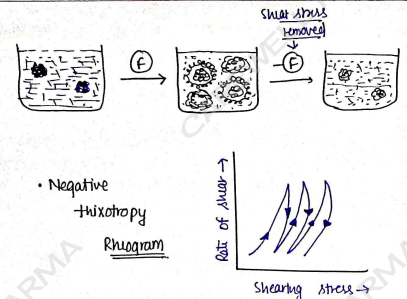 Shear stress
removed
F
F
• Negative
thixotropy
Rheogram
Rate of shear →
Shearing stress →